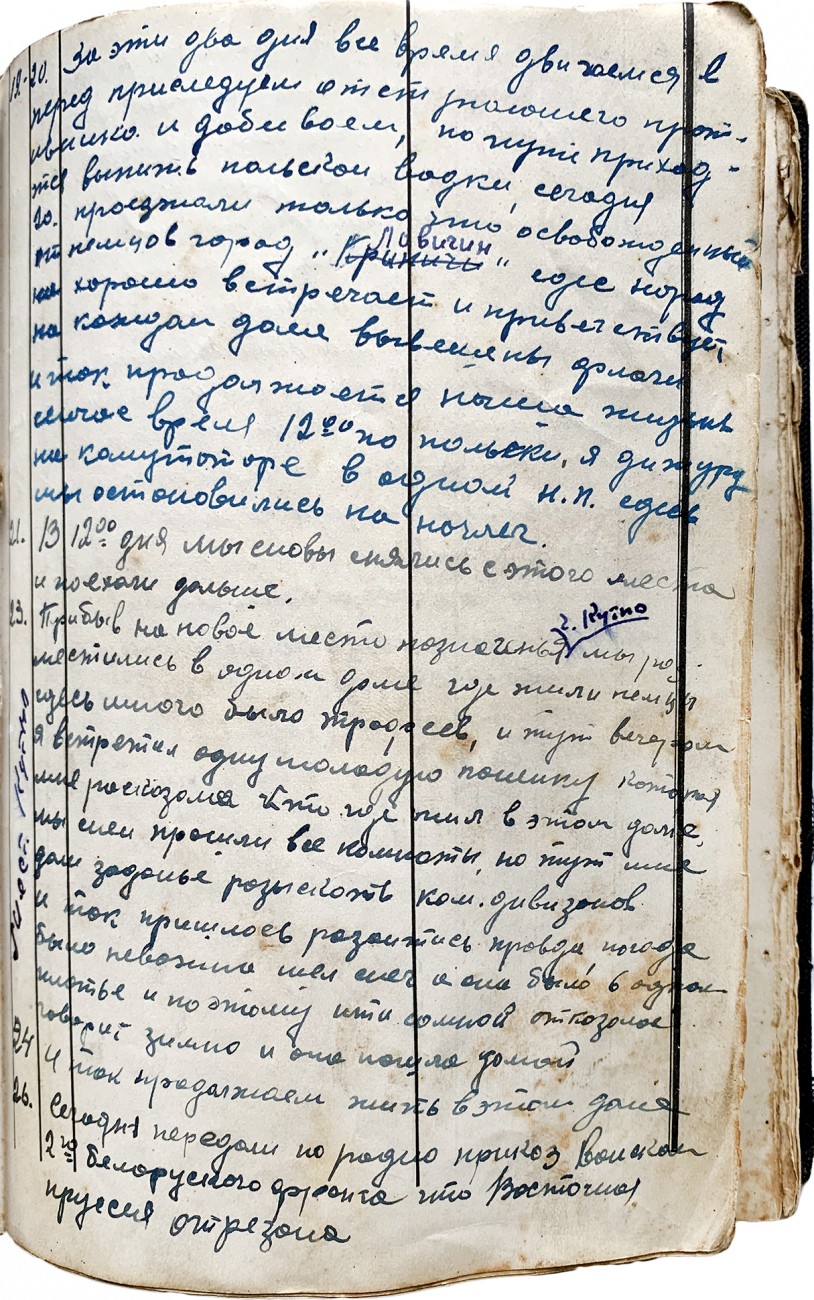 19-20. За эти два дня все время движемся в
перед приследуем отступающего прот-
ивника и добиваем, по пути приход-
тся выпить польской водки, сегодня
20. проезжали только что освобожденный
от немцов город "Криничи" Ловичин едес народ
нас хорошо встречает и приветствует,
на каждом доме вывешены флаги
и так продолжается наша жизнь
сейчас время 12 00 по польски, я дижурю
на комутаторе в одном н.п. едесь
мы остановились на ночлег.
21. В 12 00 дня мы сновы снялись с этого места
и поехали дальше.
23. Прибыв на новое место назначенья г. Кутно мы раз-
местились в одном доме где жили немцы
здесь много было трофеев, и тут вечером
я встретил одну молодую польку которая
мне расказала кто где жил в этом доме,
мы снеи прошли все комнаты, но тут мне
дали заданье розыскать ком. дивизонов
и так пришлось разоитись правда погода
было неважна шел снег а она была в одном
платье и поэтому ити сомной отказалас
говорит зимно и она пошла домой
24 И так продолжаем жить в этом доме
26. Сегодня передали по радио приказ Воискам
2го Белоруского фронта что Восточная
пруссия отрезана
Кутно